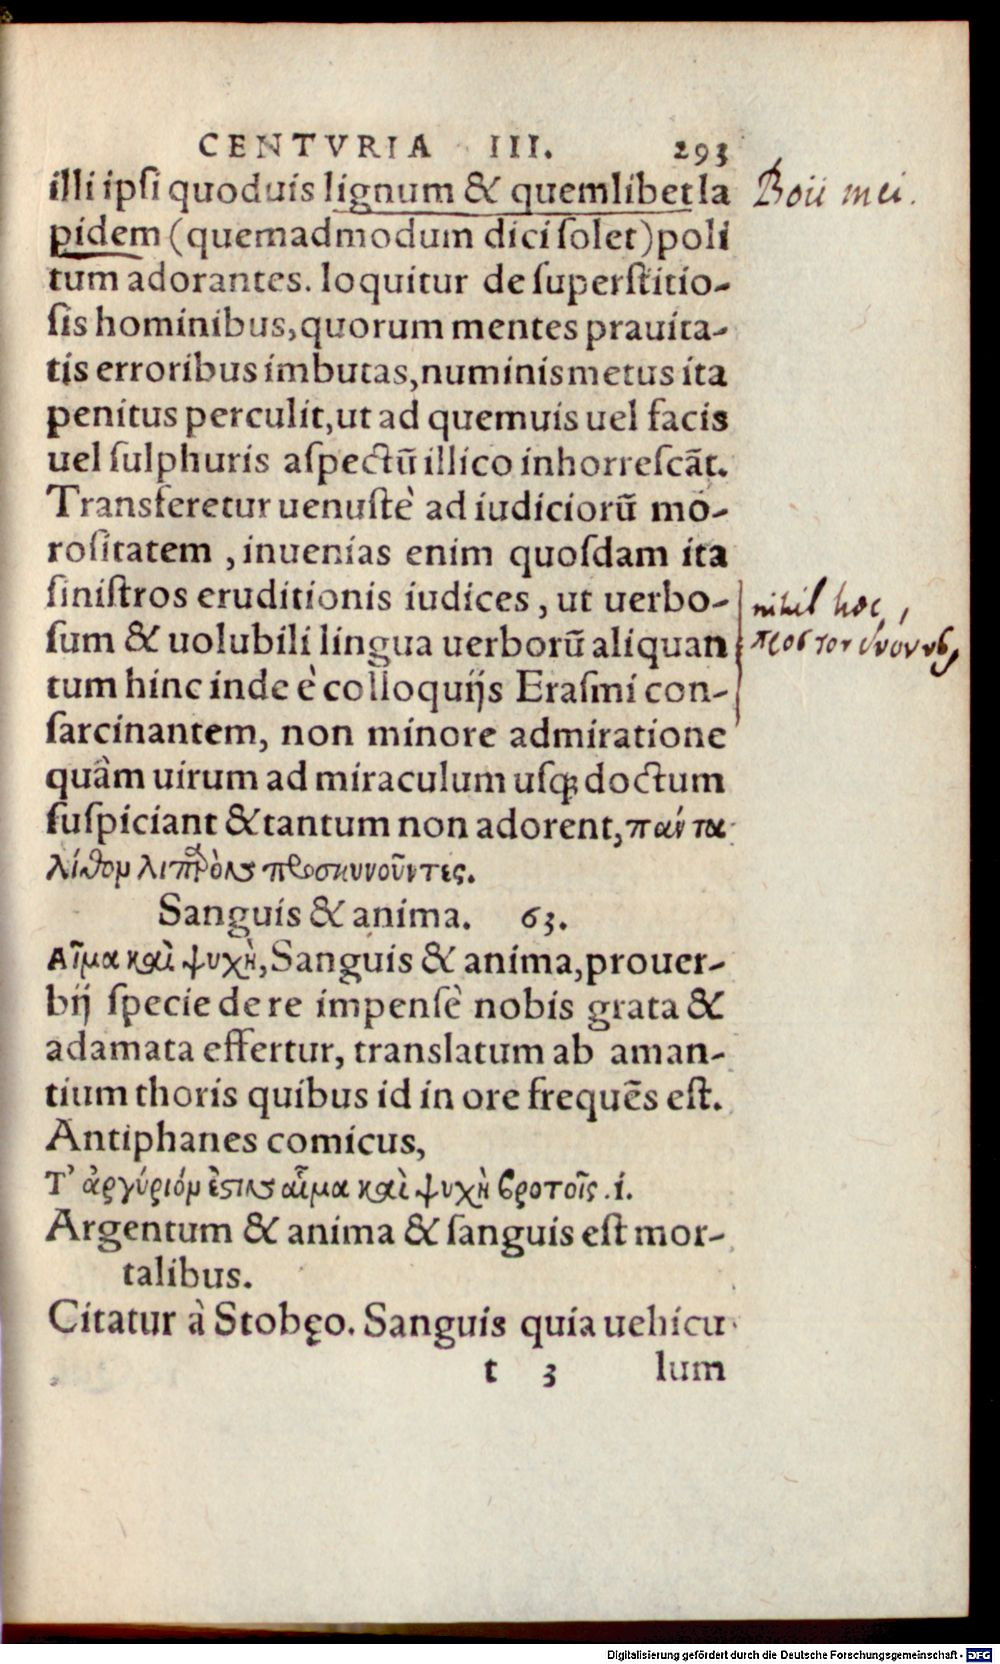 CENTVRIA III. 293
illi ipsi quoduis lignum & quemlibet la
pidem (quemadmodum dici solet) poli
tum adorantes. loquitur de superstitio-
sis hominibus, quorum mentes prauita-
tis erroribus imbutas, numinis metus ita
penitus perculit, ut ad quemuis uel facis
uel sulphuris aspectū illico inhorrescāt.
Transferetur uenustè ad iudiciorū mo-
rositatem, inuenias enim quosdam ita
sinistros eruditionis iudices, ut uerbo-
sum & uolubili lingua uerborū aliquan
tum hinc inde è colloquijs Erasmi con-
sarcinantem, non minore admiratione
quàm uirum ad miraculum usq; doctum
suspiciant & tantum non adorent, πάντα
λίθον λιπαρὸν προσκυνοῦντες.
Sanguis & anima. 63.
Αἷμα καὶ ψυχὴ, Sanguis & anima, prouer-
bij specie de re impensè nobis grata &
adamata effertur, translatum ab aman-
tium thoris quibus id in ore frequēs est.
Antiphanes comicus,
Τ' ἀργύριόν ἐστιν αἷμα καὶ ψυχὴ βροτοῖς .i.
Argentum & anima & sanguis est mor-
talibus.
Citatur à Stobęo. Sanguis quia uehicu
t 3 lum
Boii mei.
nihil hoc,
προς τον
Digitalisierung gefördert durch die Deutsche Forschungsgemeinschaft - DFG